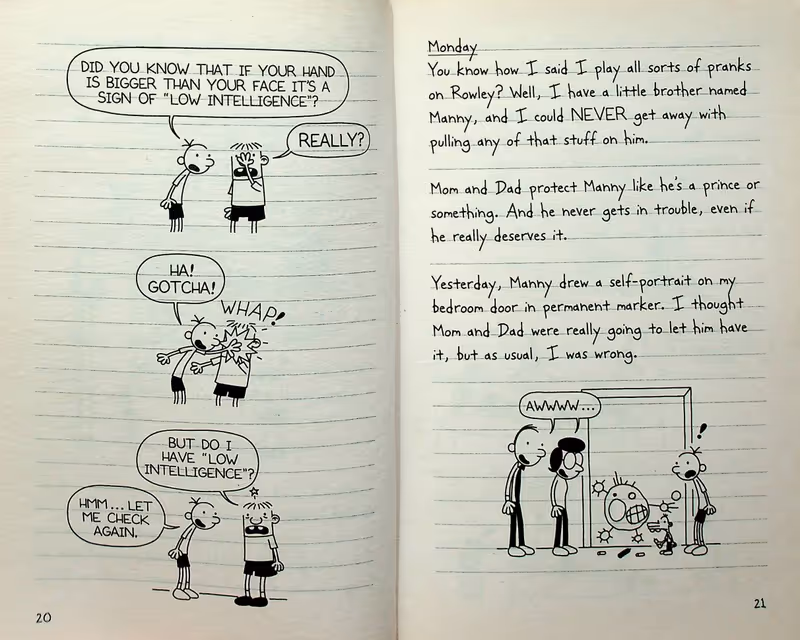 DID YOU KNOW THAT IF YOUR HAND
IS BIGGER THAN YOUR FACE IT'S A
SIGN OF "LOW INTELLIGENCE"?
REALLY?
HA!
GOTCHA!
WHAP!
BUT DO I
HAVE "LOW
INTELLIGENCE"?
HMM... LET
ME CHECK
AGAIN.
20
Monday
You know how I said I play all sorts of pranks
on Rowley? Well, I have a little brother named
Manny, and I could NEVER get away with
pulling any of that stuff on him.
Mom and Dad protect Manny like he's a prince or
something. And he never gets in trouble, even if
he really deserves it.
Yesterday, Manny drew a self-portrait on my
bedroom door in permanent marker. I thought
Mom and Dad were really going to let him have
it, but as usual, I was wrong.
AWWWW...
!
21